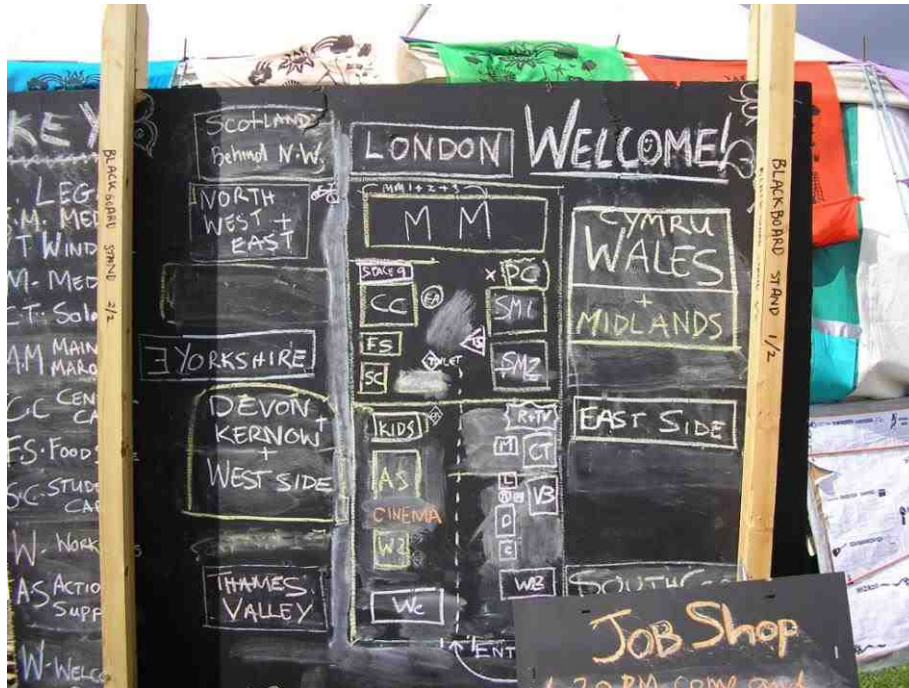 KEY
. LEG
.M. MED
T WIND
M- MED
CT- Sola
M.M MAIN
MARQ
C.C CEN
CA
FS. FOOD S
S.C STUDE
CAF
W- WORK
AS ACTIO
SUPP
W-WELCO
BLACKBOARD STAND 2/2
SCOTLAND
Behind N.W.
NORTH
WEST +
EAST
YORKSHIRE
DEVON +
KERNOW
+
WEST SIDE
THAMES
VALLEY
LONDON
WELCOME!
MM 1 + 2 + 3
M M
SPACE 9
CC
EA
FS
SC
TOILET
IS
X PC
SM1
SM2
KIDS
AS
CINEMA
W2
WC
R+TV
M
CT
L
V3
D
ENT
CYMRU
WALES
+
MIDLANDS
EAST SIDE
SOUTH
BLACKBOARD STAND 1/2
JOB SHOP